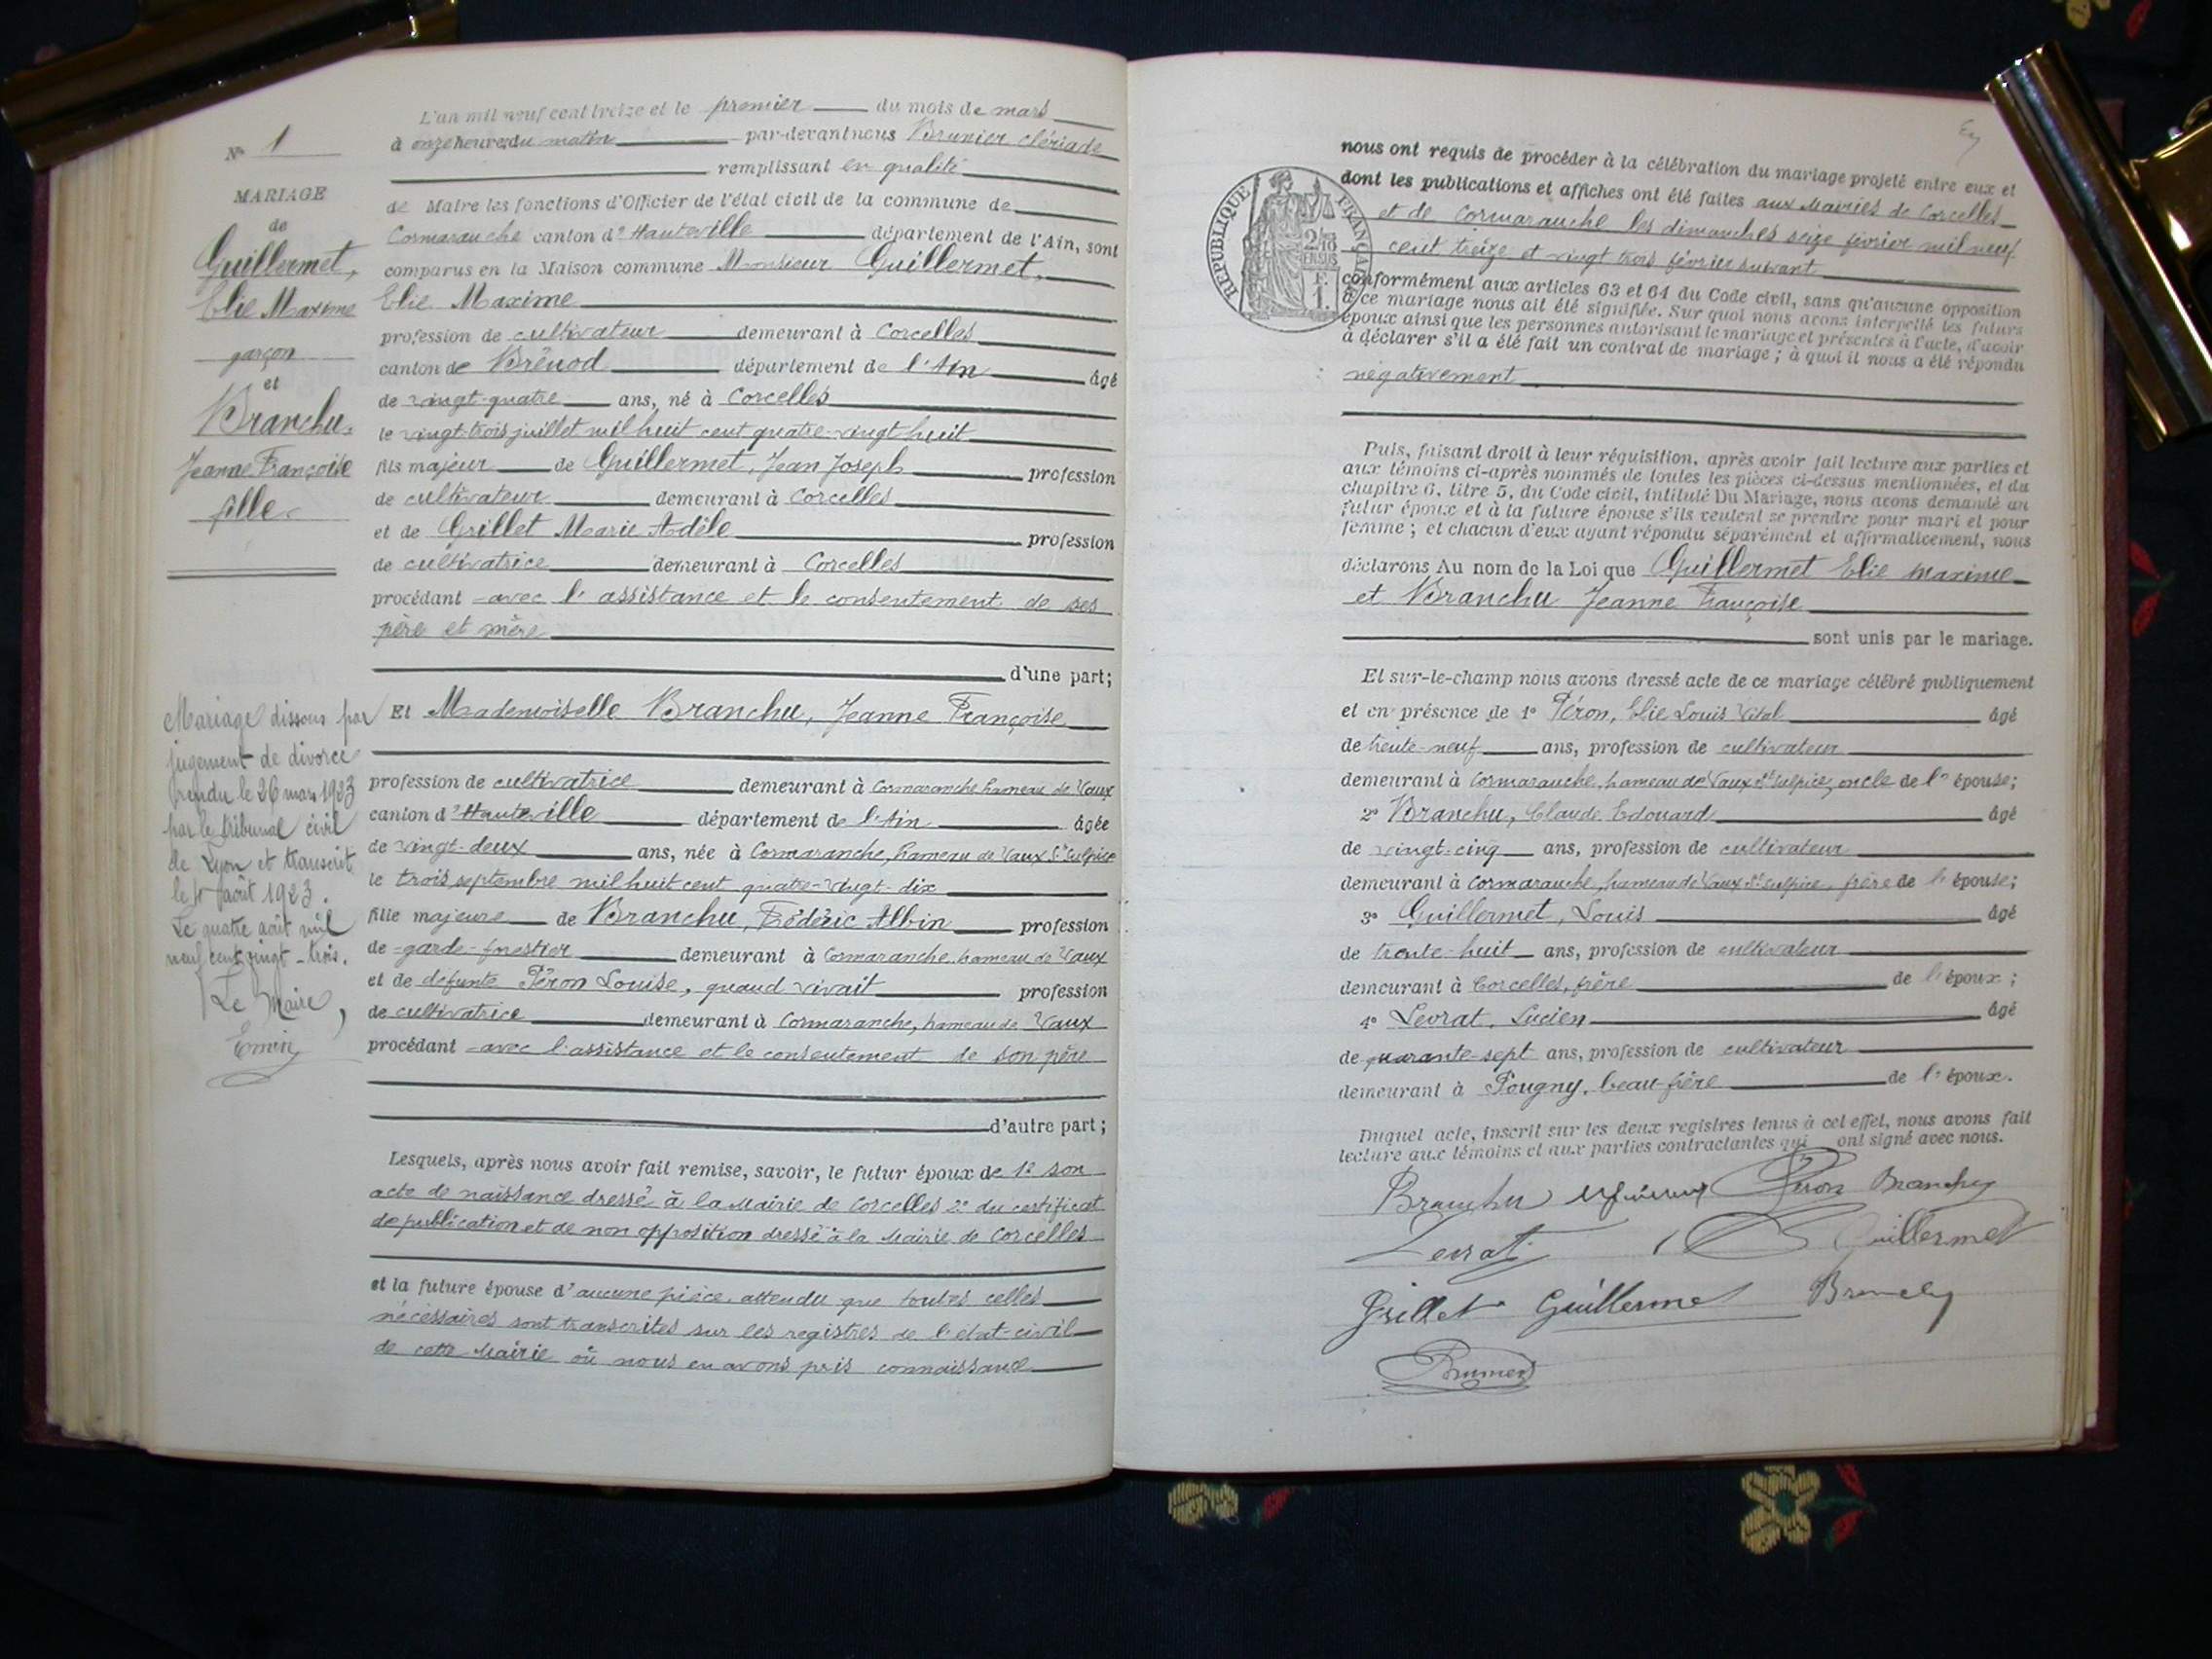 N° 1
MARIAGE
de
Guillermet,
Elie Maxime
garçon
et
Branchu,
Jeanne Françoise
fille
Mariage dissous par
jugement de divorce
rendu le 26 mars 1923
par le tribunal civil
de Lyon et transcrit
le 4 août 1923.
Le quatre août mil
neuf cent vingt-trois.
Le Maire,
L'an mil neuf cent treize et le premier du mois de mars
à onze heures du matin par-devant nous Brunier Clériade
remplissant en qualité
de Maire les fonctions d'Officier de l'état civil de la commune de
Cormaranche canton d'Hauteville département de l'Ain, sont
comparus en la Maison commune Monsieur Guillermet,
Elie Maxime
profession de cultivateur demeurant à Corcelles
canton de Brénod département de l'Ain âgé
de vingt-quatre ans, né à Corcelles
le vingt-trois juillet mil huit cent quatre-vingt huit
fils majeur de Guillermet, Jean Joseph profession
de cultivateur demeurant à Corcelles
et de Grillet Marie Adèle profession
de cultivatrice demeurant à Corcelles
procédant avec l'assistance et le consentement de ses
père et mère
d'une part;
Et Mademoiselle Branchu, Jeanne Françoise
profession de cultivatrice demeurant à Cormaranche hameau de Vaux
canton d'Hauteville département de l'Ain âgée
de vingt-deux ans, née à Cormaranche, hameau de Vaux St Sulpice
le trois septembre mil huit cent quatre-vingt-dix
fille majeure de Branchu, Frédéric Albin profession
de garde-forestier demeurant à Cormaranche, hameau de Vaux
et de défunte Péron Louise, quand vivait profession
de cultivatrice demeurant à Cormaranche, hameau de Vaux
procédant avec l'assistance et le consentement de son père
d'autre part;
Lesquels, après nous avoir fait remise, savoir, le futur époux de 1° son
acte de naissance dressé à la Mairie de Corcelles 2° du certificat
de publication et de non opposition dressé à la Mairie de Corcelles
et la future épouse d'aucune pièce attendu que toutes celles
nécessaires sont transcrites sur les registres de l'état-civil
de cette Mairie où nous en avons pris connaissance
RÉPUBLIQUE FRANÇAISE
2/10
EN SUS
F.
1.
nous ont requis de procéder à la célébration du mariage projeté entre eux et
dont les publications et affiches ont été faites aux Mairies de Corcelles
et de Cormaranche les dimanches seize février mil neuf
cent treize et vingt trois février suivant
conformément aux articles 63 et 64 du Code civil, sans qu'aucune opposition
à ce mariage nous ait été signifiée. Sur quoi nous avons interpellé les futurs
époux ainsi que les personnes autorisant le mariage et présentes à l'acte, d'avoir
à déclarer s'il a été fait un contrat de mariage; à quoi il nous a été répondu
négativement
Puis, faisant droit à leur réquisition, après avoir fait lecture aux parties et
aux témoins ci-après nommés de toutes les pièces ci-dessus mentionnées, et du
chapitre 6, titre 5, du Code civil, intitulé Du Mariage, nous avons demandé au
futur époux et à la future épouse s'ils veulent se prendre pour mari et pour
femme; et chacun d'eux ayant répondu séparément et affirmativement, nous
déclarons Au nom de la Loi que Guillermet Elie Maxime
et Branchu Jeanne Françoise
sont unis par le mariage.
Et sur-le-champ nous avons dressé acte de ce mariage célébré publiquement
et en présence de 1° Péron, Elie Louis Vital âgé
de trente-neuf ans, profession de cultivateur
demeurant à Cormaranche, hameau de Vaux St Sulpice, oncle de l'épouse;
2° Branchu, Claude Edouard âgé
de vingt-cinq ans, profession de cultivateur
demeurant à Cormaranche, hameau de Vaux St Sulpice, frère de l'épouse;
3° Guillermet, Louis âgé
de trente-huit ans, profession de cultivateur
demeurant à Corcelles, frère de l'époux;
4° Levrat, Lucien âgé
de quarante-sept ans, profession de cultivateur
demeurant à Pougny, beau-frère de l'époux.
Duquel acte, inscrit sur les deux registres tenus à cet effet, nous avons fait
lecture aux témoins et aux parties contractantes qui ont signé avec nous.
Branchu Péron Branchu
Levrat Guillermet
Grillet Guillermet Branchu
Brunier